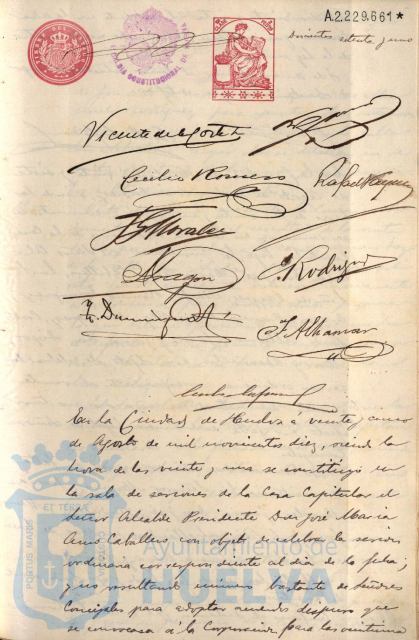 A.2.229.661*
Doscientos setenta y uno
Vicente de la Corte
Cecilio Romero
Rafael Vazquez
J. Morales
Aragon
C. Rodriguez
Dominguez
J. Alhamar
En la Ciudad de Huelva á veinte y cinco
de Agosto de mil novecientos diez, siendo la
hora de las veinte y una se constituyó en
la sala de sesiones de la Casa Capitular el
Señor Alcalde Presidente Don José Maria
Caballero con objeto de celebrar la sesion
ordinaria correspondiente al dia de la fecha;
y no resultando número bastante de Señores
Concejales para adoptar acuerdos dispuso que
se convocase á la Corporacion para las veintiuna
Ayuntamiento de
HUELVA
PORTUS MARIS
ET TERRAE